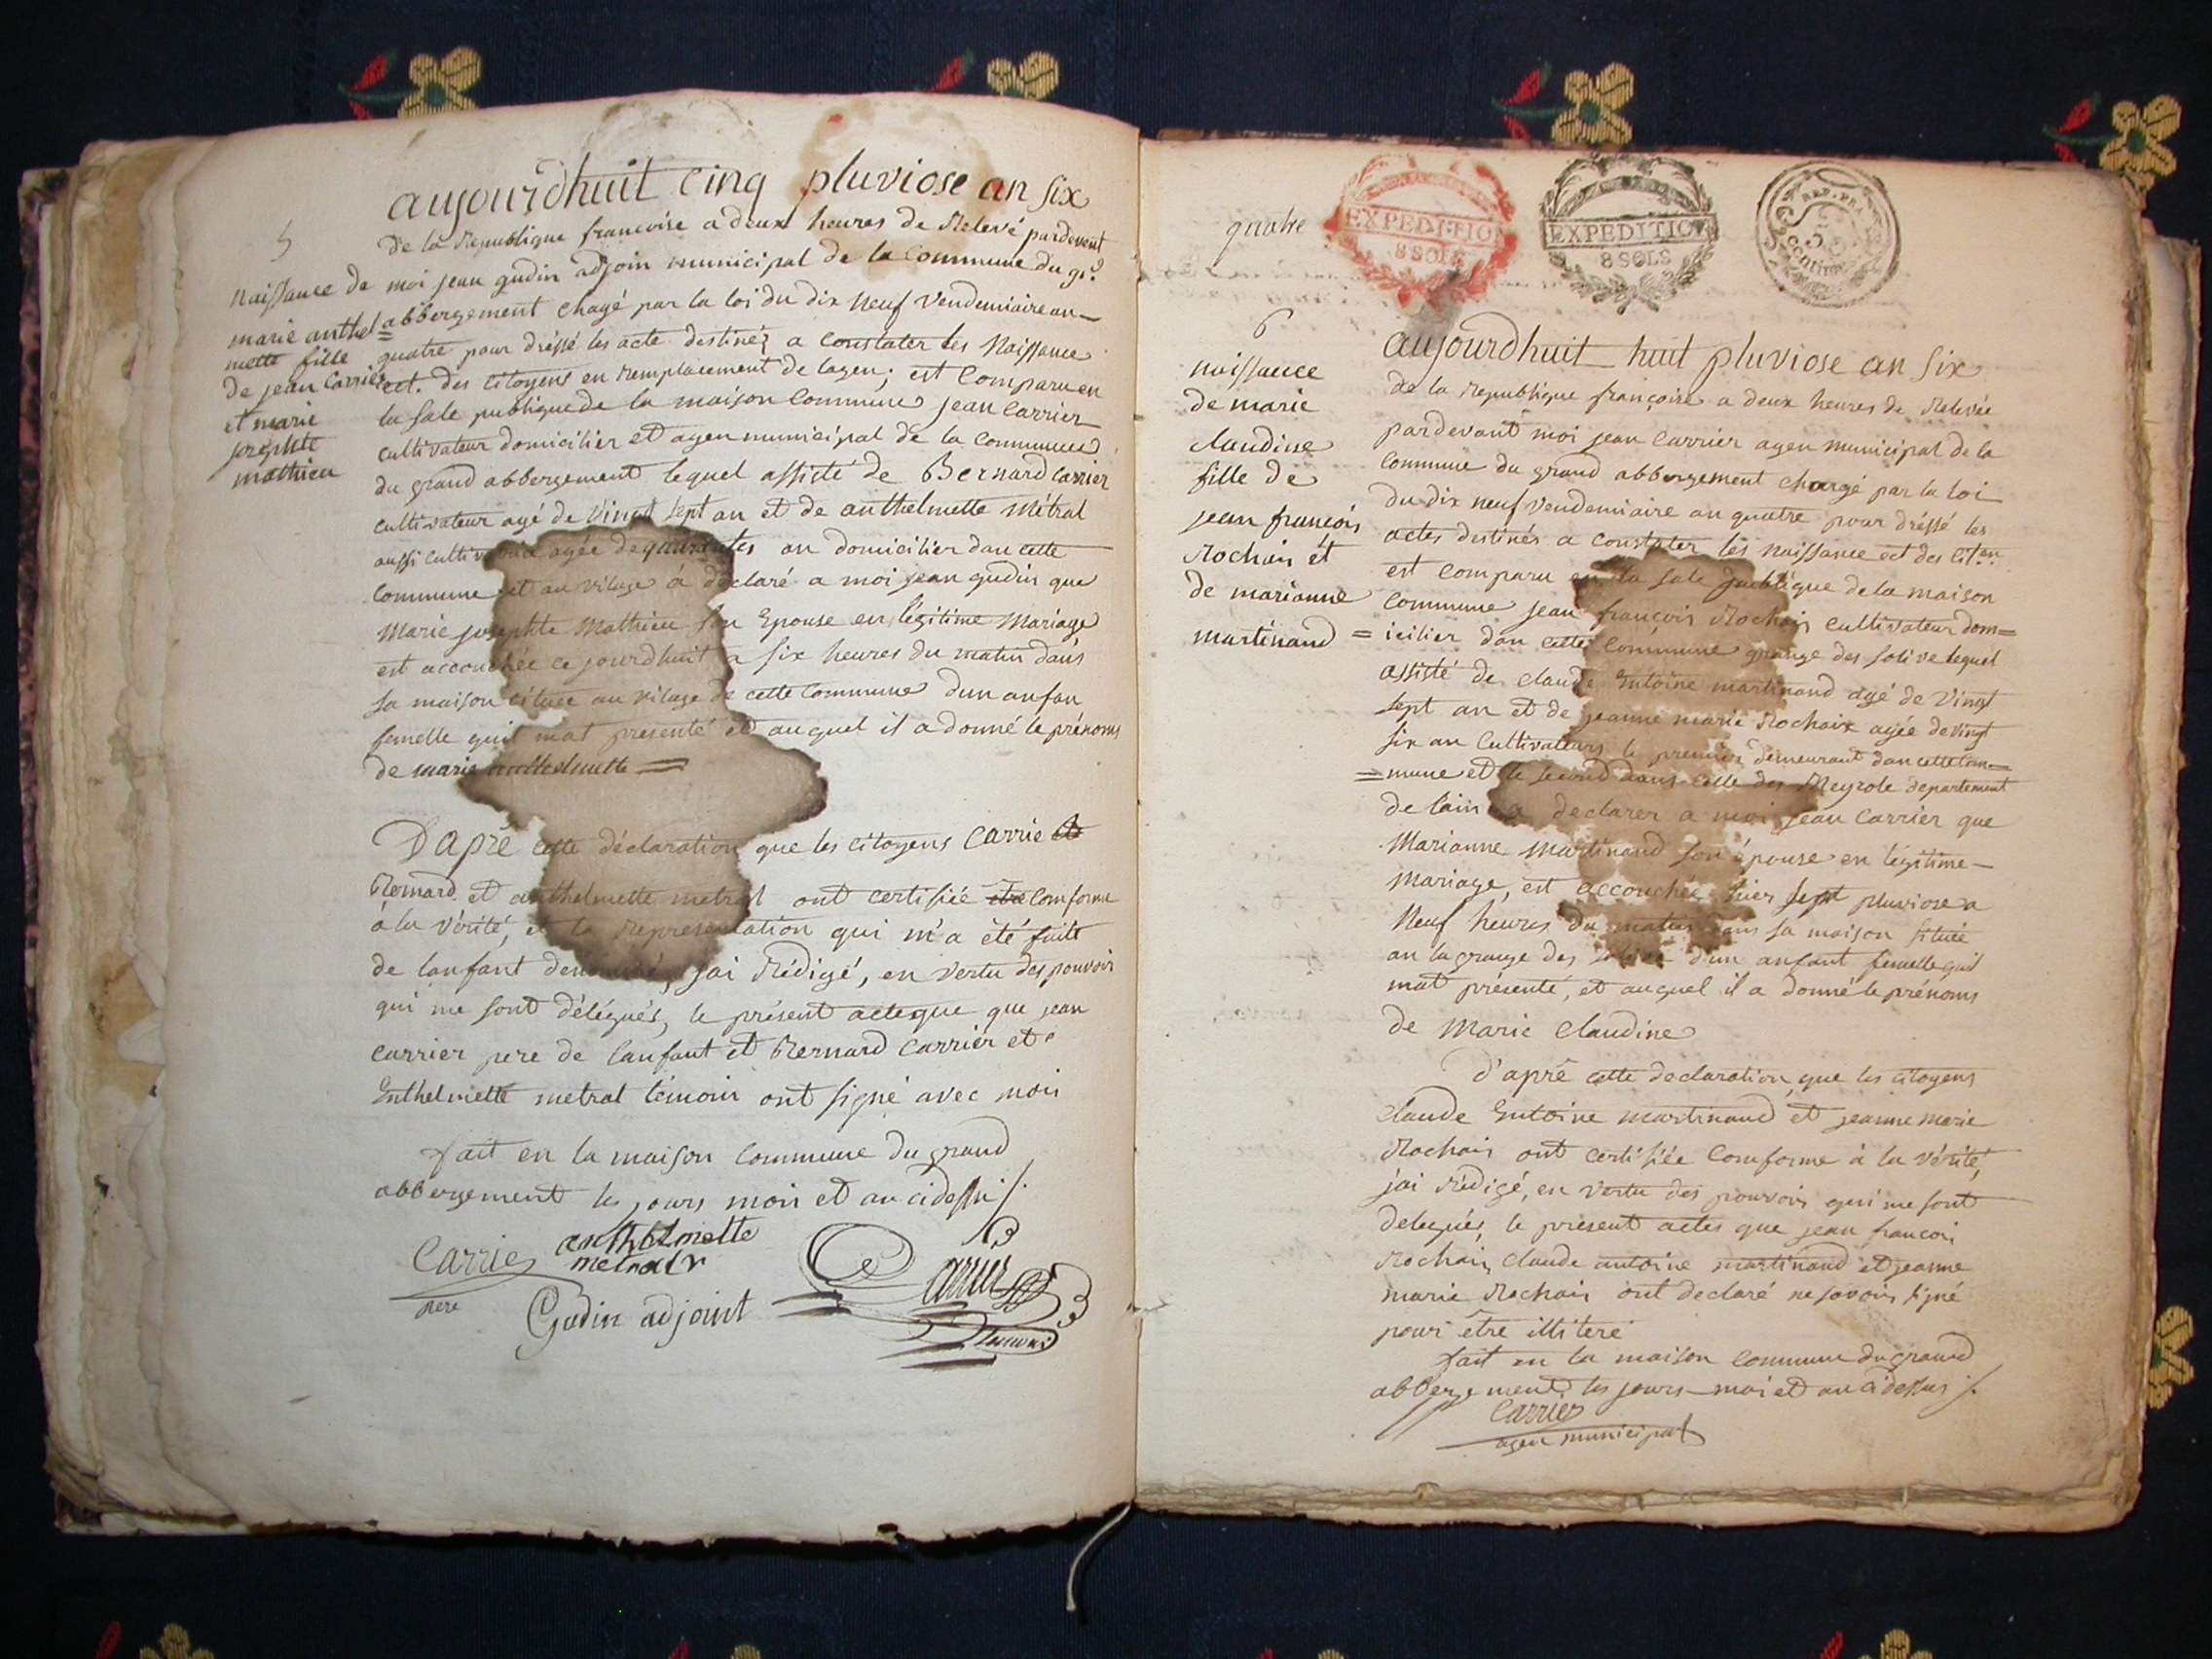 5
naissance de
marie anthel=
mette fille
de jean Carrier
et marie
josephte
mathieu
aujourdhuit cinq pluviose an six
de la Republique francoise a deux heures de Relevé pardevent
moi jean gudin adjoin municipal de la Commune du gr.d
abbergement chagé par la loi du dix neuf vendemiaire an
quatre pour dréssé les acte destinés a Constater les Naissance
ect. des citoyens en remplacement de lagen; est Comparu en
la sale publique de la maison Commune jean Carrier
cultivateur domicilier et agen municipal de la Commune
du grand abbergement lequel assisté de Bernard Carrier
cultivateur agé de vingt sept an et de anthelmette Métral
aussi agée de an domicilier dan cette
Commune et au vilage à déclaré a moi jean gudin que
Marie josephte Mathieu son Epouse en légitime Mariage
est accouchée ce jourdhuit a six heures du matin dans
sa maison cituée au vilage de cette Commune dun anfan
femelle quil mat presenté et auquel il a donné le prénoms
de marie anthelmette =
Daprè cette déclaration que les citoyens Carrie
Bernard et anthelmette metral ont certifiée être Comforme
à la Vérité, et la Representation qui m'a été faite
de lanfant denommé, jai Rédigé, en vertu des pouvoir
qui me sont délégués, le présent acte que que jean
carrier pere de lanfant et Bernard Carrier et
Enthelmette metral témoin ont signé avec moi
fait en la maison Commune du grand
abbergement les jours mois et an cidessus /.
Carrier anthelmette
metralr
pere
Gudin adjoint
Carrier
Bernard
quatre
EXPEDITION
8 SOLS
EXPEDITION
8 SOLS
REP. FRA.
6
naissance
de marie
claudine
fille de
jean françois
Rochais et
de marianne
martinand
aujourdhuit huit pluviose an six
de la Republique françoise a deux heures de Relevée
pardevant moi jean Carrier agen municipal de la
Commune du grand abbergement chargé par la loi
du dix neuf vendemiaire an quatre pour dréssé les
actes destinés a Constater les naissance ect des cit.en
est comparu en la sale publique de la maison
Commune jean françois Rochais cultivateur dom=
=icilier dan cette Commune grange des solive lequel
assisté de claude Entoine martinand agé de vingt
sept an et de jeanne marie Rochaix agée de vingt
six an Cultivateurs le premier demeurant dan cette Com=
=mune et le second dans celle des Meyrole departement
de lain a declarer a moi jean Carrier que
Marianne Martinand son épouse en légitime
Mariage, est accouchée hier sept pluviose a
Neuf heures du matin dans sa maison située
an la grange des solive d'un anfant femelle quil
mat présenté, et auquel il a donné le prénoms
de Marie Claudine
d'aprè cette declaration que les citoyens
claude Entoine martinand et jeanne marie
Rochais ont certifiée Comforme à la vérité,
jai Rédigé, en vertu des pouvoir qui me sont
delegués, le présent actes que jean francoi
Rochais, claude antoine martinand et jeanne
marie Rochais ont declaré ne savoir signé
pour être illiteré
fait en la maison Commune du grand
abbergement les jours moi et an cidessus /.
Carrier
agen municipal